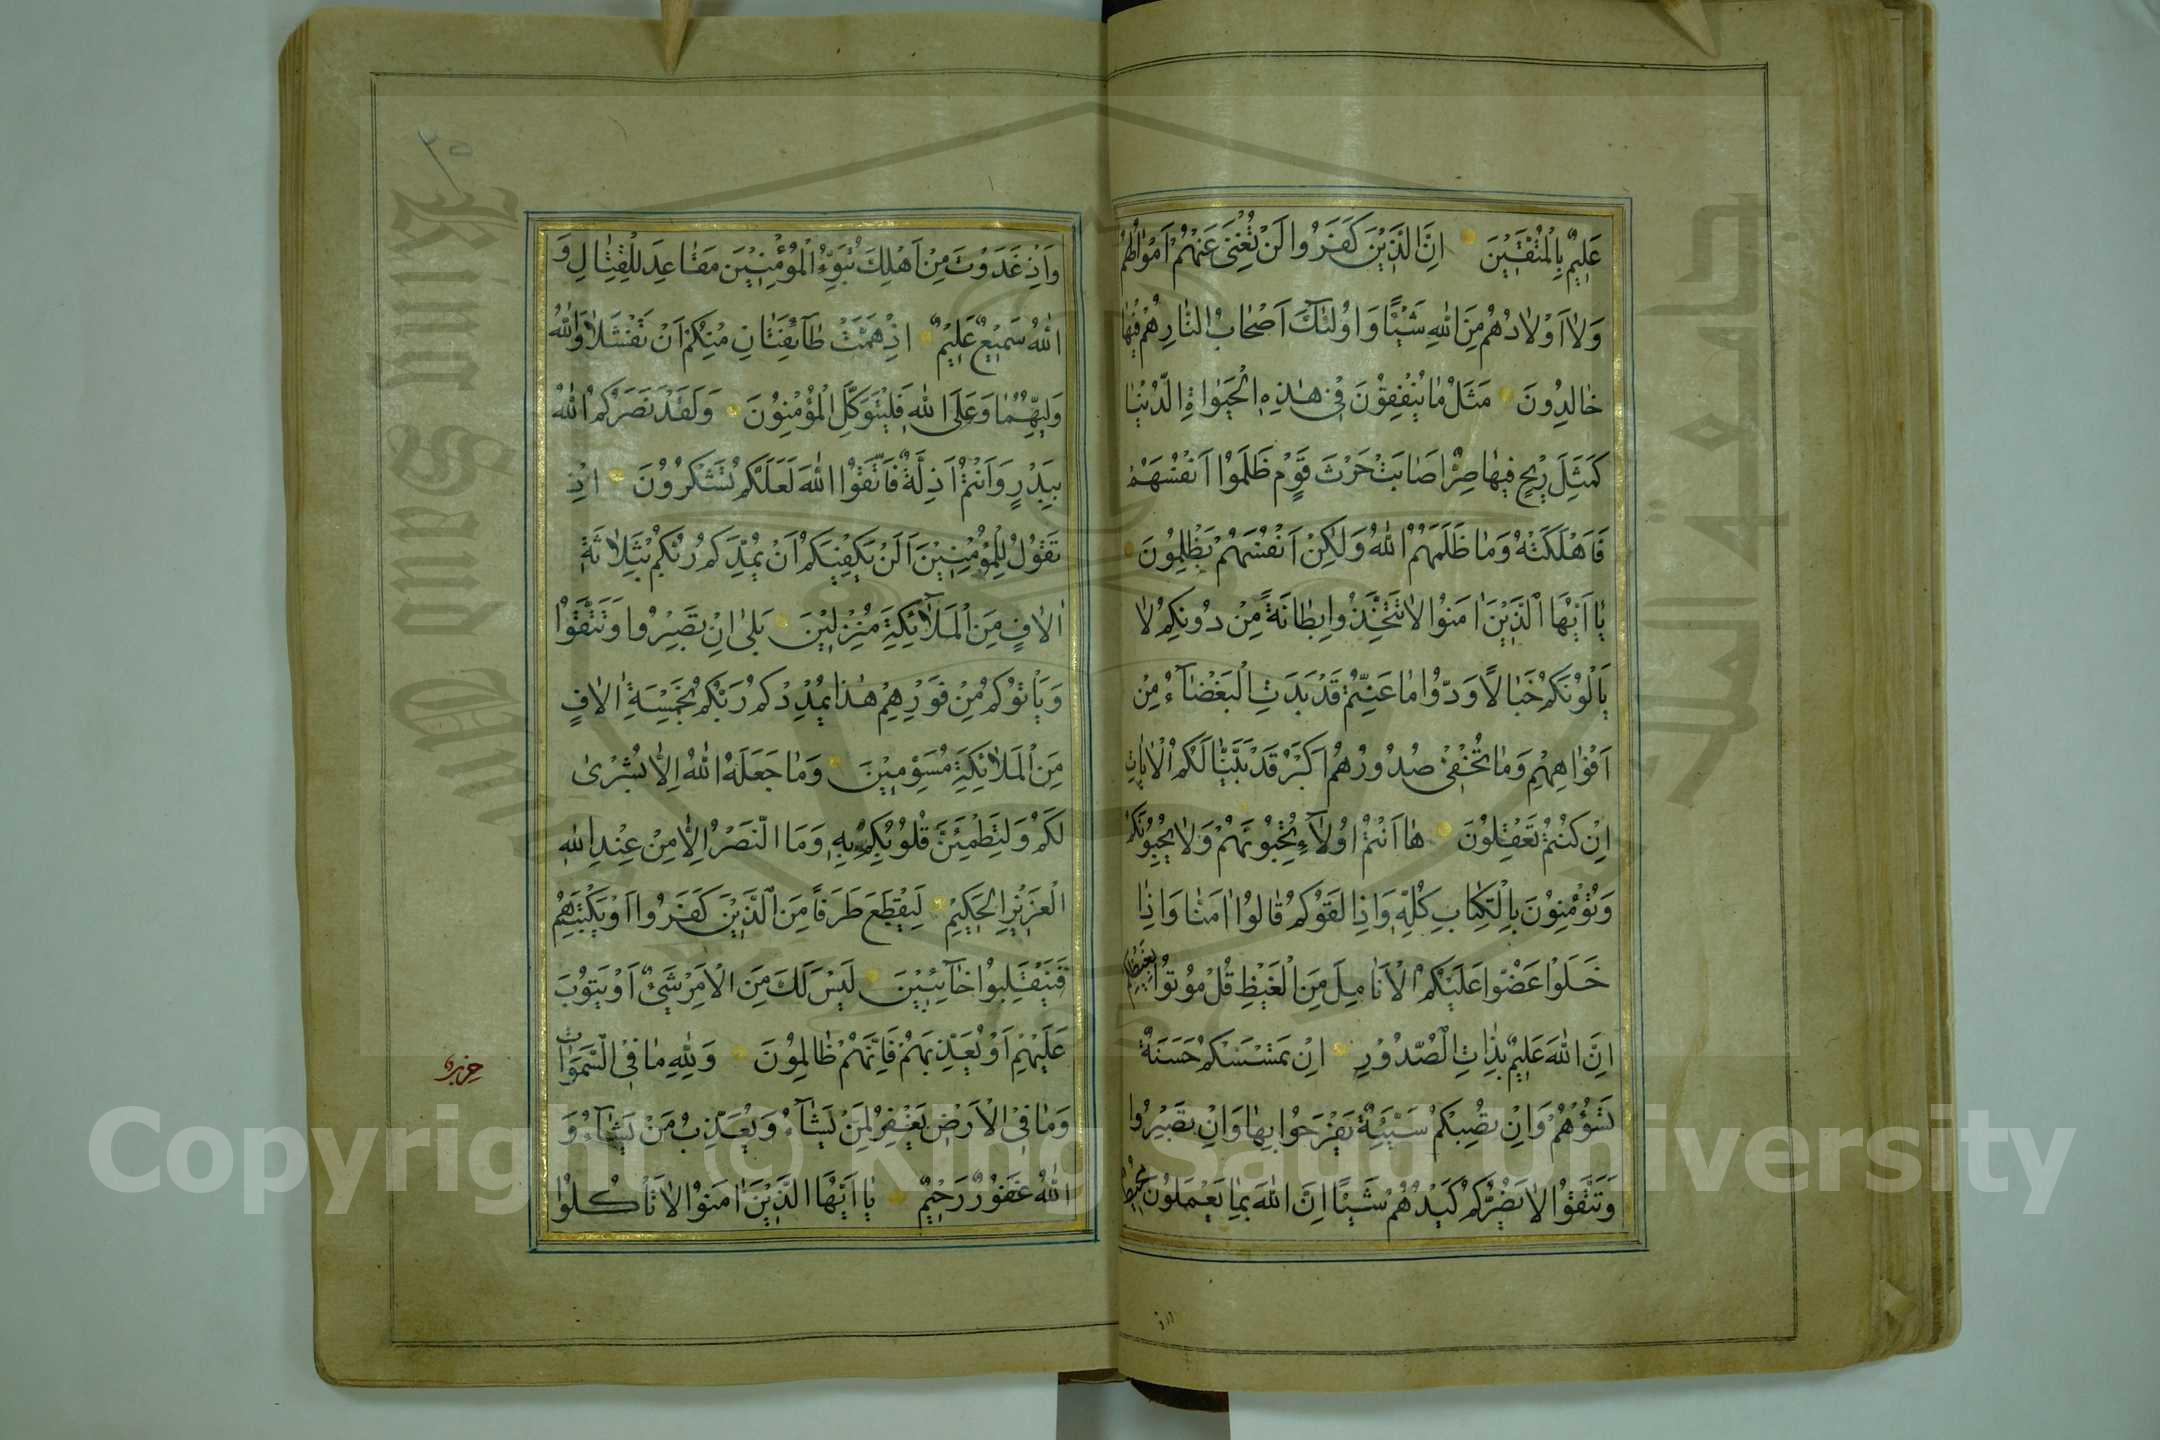 عَلِيمٌ بِالْمُتَّقِينَ اِنَّ الَّذِينَ كَفَرُوا لَنْ تُغْنِيَ عَنْهُمْ اَمْوَالُهُمْ
وَلَا اَوْلَادُهُمْ مِنَ اللّٰهِ شَيْئًا وَاُولٰئِكَ اَصْحَابُ النَّارِ هُمْ فِيهَا
خَالِدُونَ مَثَلُ مَا يُنْفِقُونَ فِي هٰذِهِ الْحَيٰوةِ الدُّنْيَا
كَمَثَلِ رِيحٍ فِيهَا صِرٌّ اَصَابَتْ حَرْثَ قَوْمٍ ظَلَمُوا اَنْفُسَهُمْ
فَاَهْلَكَتْهُ وَمَا ظَلَمَهُمُ اللّٰهُ وَلٰكِنْ اَنْفُسَهُمْ يَظْلِمُونَ
يَا اَيُّهَا الَّذِينَ اٰمَنُوا لَا تَتَّخِذُوا بِطَانَةً مِنْ دُونِكُمْ لَا
يَاْلُونَكُمْ خَبَالًا وَدُّوا مَا عَنِتُّمْ قَدْ بَدَتِ الْبَغْضَاءُ مِنْ
اَفْوَاهِهِمْ وَمَا تُخْفِي صُدُورُهُمْ اَكْبَرُ قَدْ بَيَّنَّا لَكُمُ الْاٰيَاتِ
اِنْ كُنْتُمْ تَعْقِلُونَ هَا اَنْتُمْ اُولَاءِ تُحِبُّونَهُمْ وَلَا يُحِبُّونَكُمْ
وَتُؤْمِنُونَ بِالْكِتَابِ كُلِّهِ وَاِذَا لَقُوكُمْ قَالُوا اٰمَنَّا وَاِذَا
خَلَوْا عَضُّوا عَلَيْكُمُ الْاَنَامِلَ مِنَ الْغَيْظِ قُلْ مُوتُوا بِغَيْظِكُمْ
اِنَّ اللّٰهَ عَلِيمٌ بِذَاتِ الصُّدُورِ اِنْ تَمْسَسْكُمْ حَسَنَةٌ
تَسُؤْهُمْ وَاِنْ تُصِبْكُمْ سَيِّئَةٌ يَفْرَحُوا بِهَا وَاِنْ تَصْبِرُوا
وَتَتَّقُوا لَا يَضُرُّكُمْ كَيْدُهُمْ شَيْئًا اِنَّ اللّٰهَ بِمَا يَعْمَلُونَ مُحِيطٌ
٢٥
وَاِذْ غَدَوْتَ مِنْ اَهْلِكَ تُبَوِّئُ الْمُؤْمِنِينَ مَقَاعِدَ لِلْقِتَالِ وَ
اللّٰهُ سَمِيعٌ عَلِيمٌ اِذْ هَمَّتْ طَائِفَتَانِ مِنْكُمْ اَنْ تَفْشَلَا وَاللّٰهُ
وَلِيُّهُمَا وَعَلَى اللّٰهِ فَلْيَتَوَكَّلِ الْمُؤْمِنُونَ وَلَقَدْ نَصَرَكُمُ اللّٰهُ
بِبَدْرٍ وَاَنْتُمْ اَذِلَّةٌ فَاتَّقُوا اللّٰهَ لَعَلَّكُمْ تَشْكُرُونَ اِذْ
تَقُولُ لِلْمُؤْمِنِينَ اَلَنْ يَكْفِيَكُمْ اَنْ يُمِدَّكُمْ رَبُّكُمْ بِثَلَاثَةِ
اٰلَافٍ مِنَ الْمَلَائِكَةِ مُنْزَلِينَ بَلٰى اِنْ تَصْبِرُوا وَتَتَّقُوا
وَيَاْتُوكُمْ مِنْ فَوْرِهِمْ هٰذَا يُمْدِدْكُمْ رَبُّكُمْ بِخَمْسَةِ اٰلَافٍ
مِنَ الْمَلَائِكَةِ مُسَوِّمِينَ وَمَا جَعَلَهُ اللّٰهُ اِلَّا بُشْرٰى
لَكُمْ وَلِتَطْمَئِنَّ قُلُوبُكُمْ بِهِ وَمَا النَّصْرُ اِلَّا مِنْ عِنْدِ اللّٰهِ
الْعَزِيزِ الْحَكِيمِ لِيَقْطَعَ طَرَفًا مِنَ الَّذِينَ كَفَرُوا اَوْ يَكْبِتَهُمْ
فَيَنْقَلِبُوا خَائِبِينَ لَيْسَ لَكَ مِنَ الْاَمْرِ شَيْءٌ اَوْ يَتُوبَ
عَلَيْهِمْ اَوْ يُعَذِّبَهُمْ فَاِنَّهُمْ ظَالِمُونَ وَلِلّٰهِ مَا فِي السَّمٰوَاتِ
وَمَا فِي الْاَرْضِ يَغْفِرُ لِمَنْ يَشَاءُ وَيُعَذِّبُ مَنْ يَشَاءُ وَ
اللّٰهُ غَفُورٌ رَحِيمٌ يَا اَيُّهَا الَّذِينَ اٰمَنُوا لَا تَاْكُلُوا
Copyright © King Saud University
King Saud University
جامعة الملك